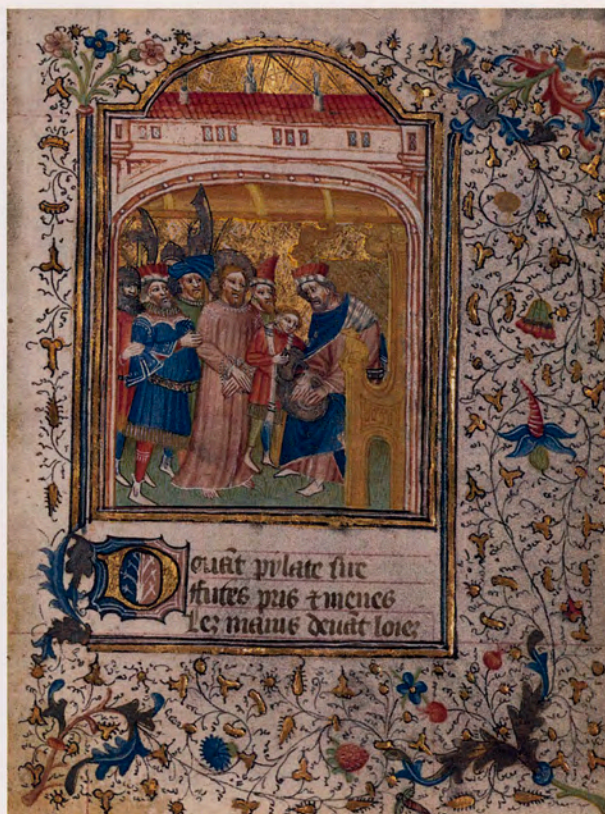 Douāt pylate fue
ffutes pris ⁊ menes
Lez mains deuāt loiez